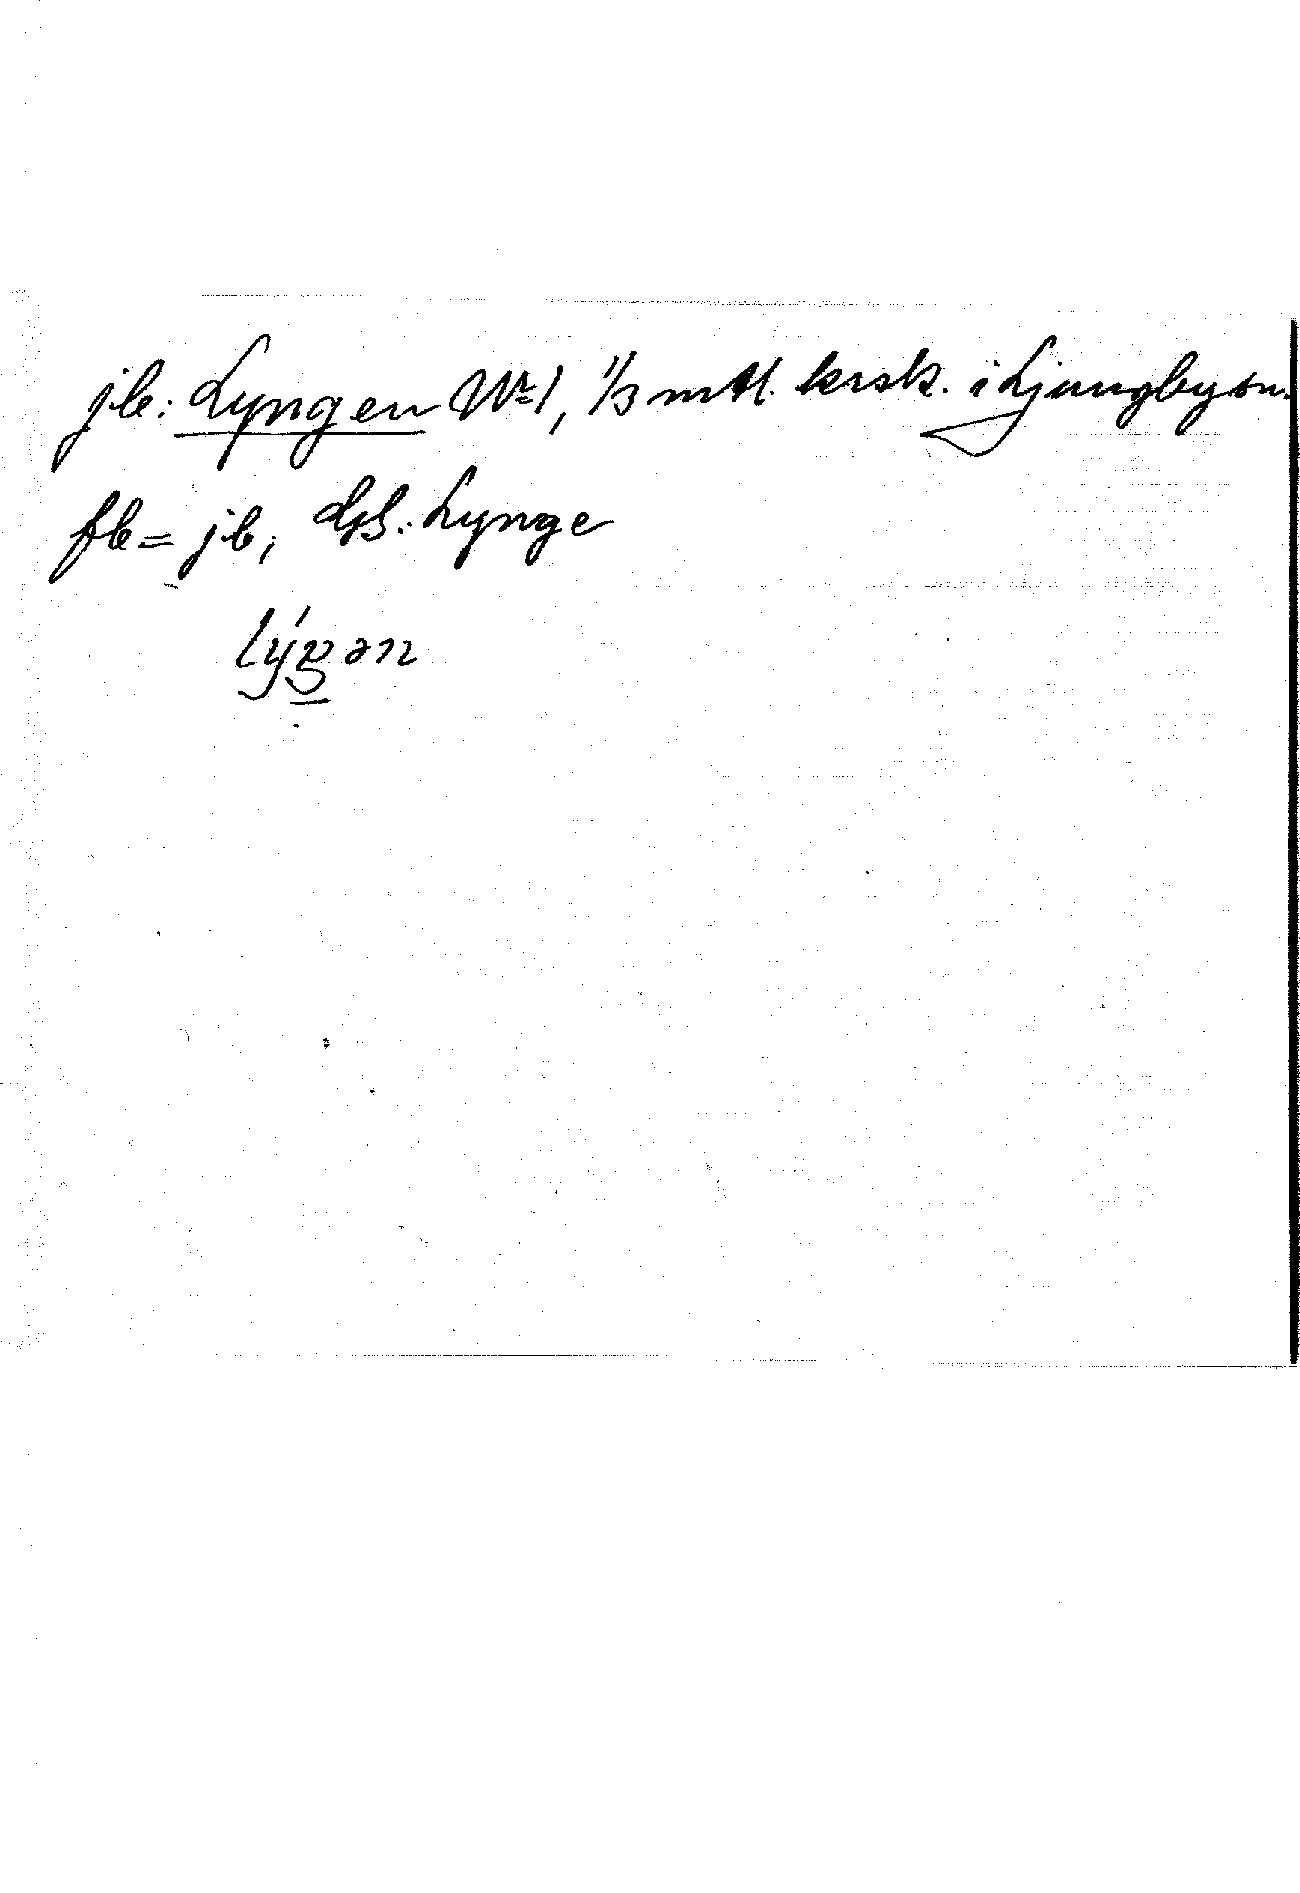 jb: Lyngen No 1, 1/3 mtl. krsk. i Ljungby sn.
fb = jb; dsb: Lynge